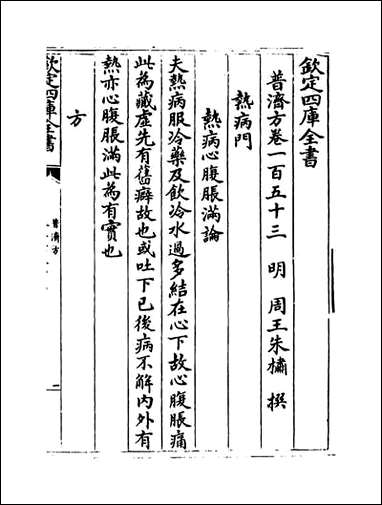 欽定四庫全書
普濟方卷一百五十三　明　周王朱橚　撰
熱病門
熱病心腹脹滿論
夫熱病服冷藥及飲冷水過多結在心下故心腹脹痛
此為藏虛先有舊癖故也或吐下已後病不解內外有
熱亦心腹脹滿此為有實也
方
欽定四庫全書
普濟方